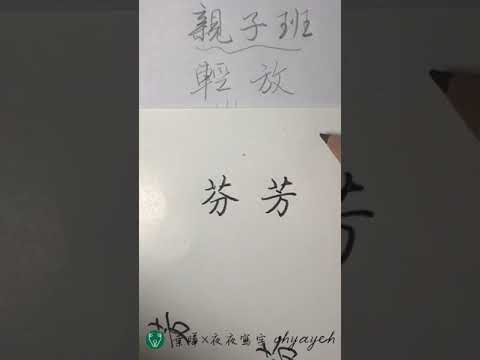 親子班
輕放
芬芳
夜夜寫字 ghyayeh